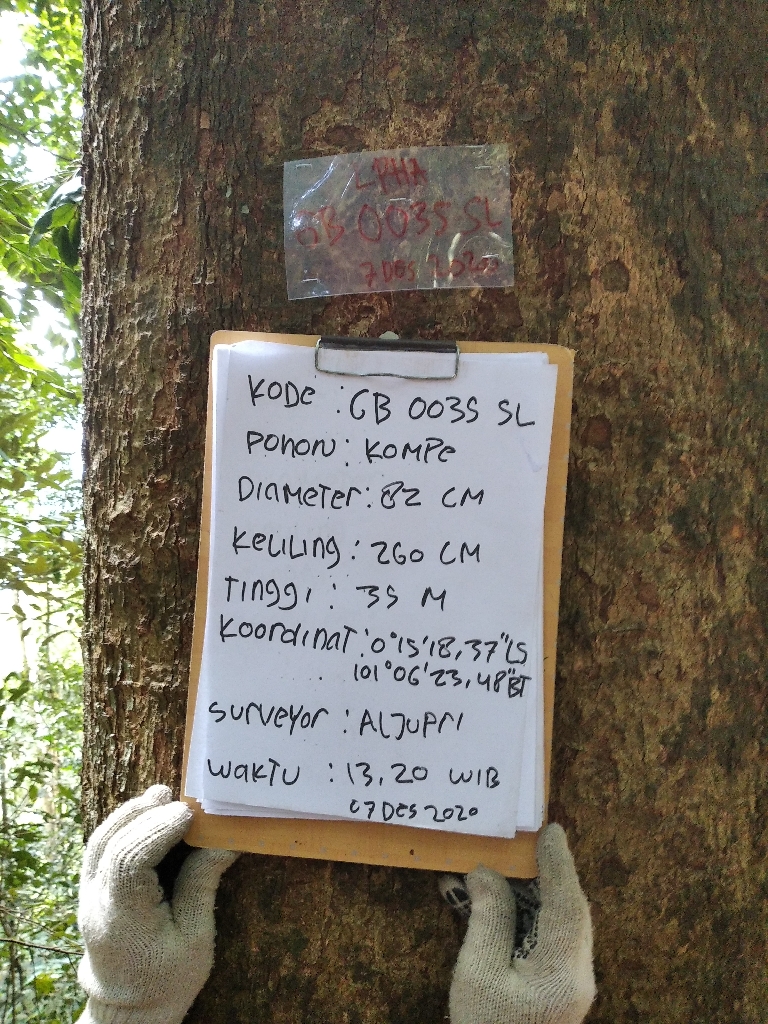 LPHA
GB 0035 SL
7 DES 2020
KODE : GB 0035 SL
POHON : KOMPE
DIAMETER : 82 CM
KELILING : 260 CM
TINGGI : 35 M
KOORDINAT : 0°15'18,37"LS
101°06'23,48"BT
SURVEYOR : ALJUPRI
WAKTU : 13,20 WIB
07 DES 2020